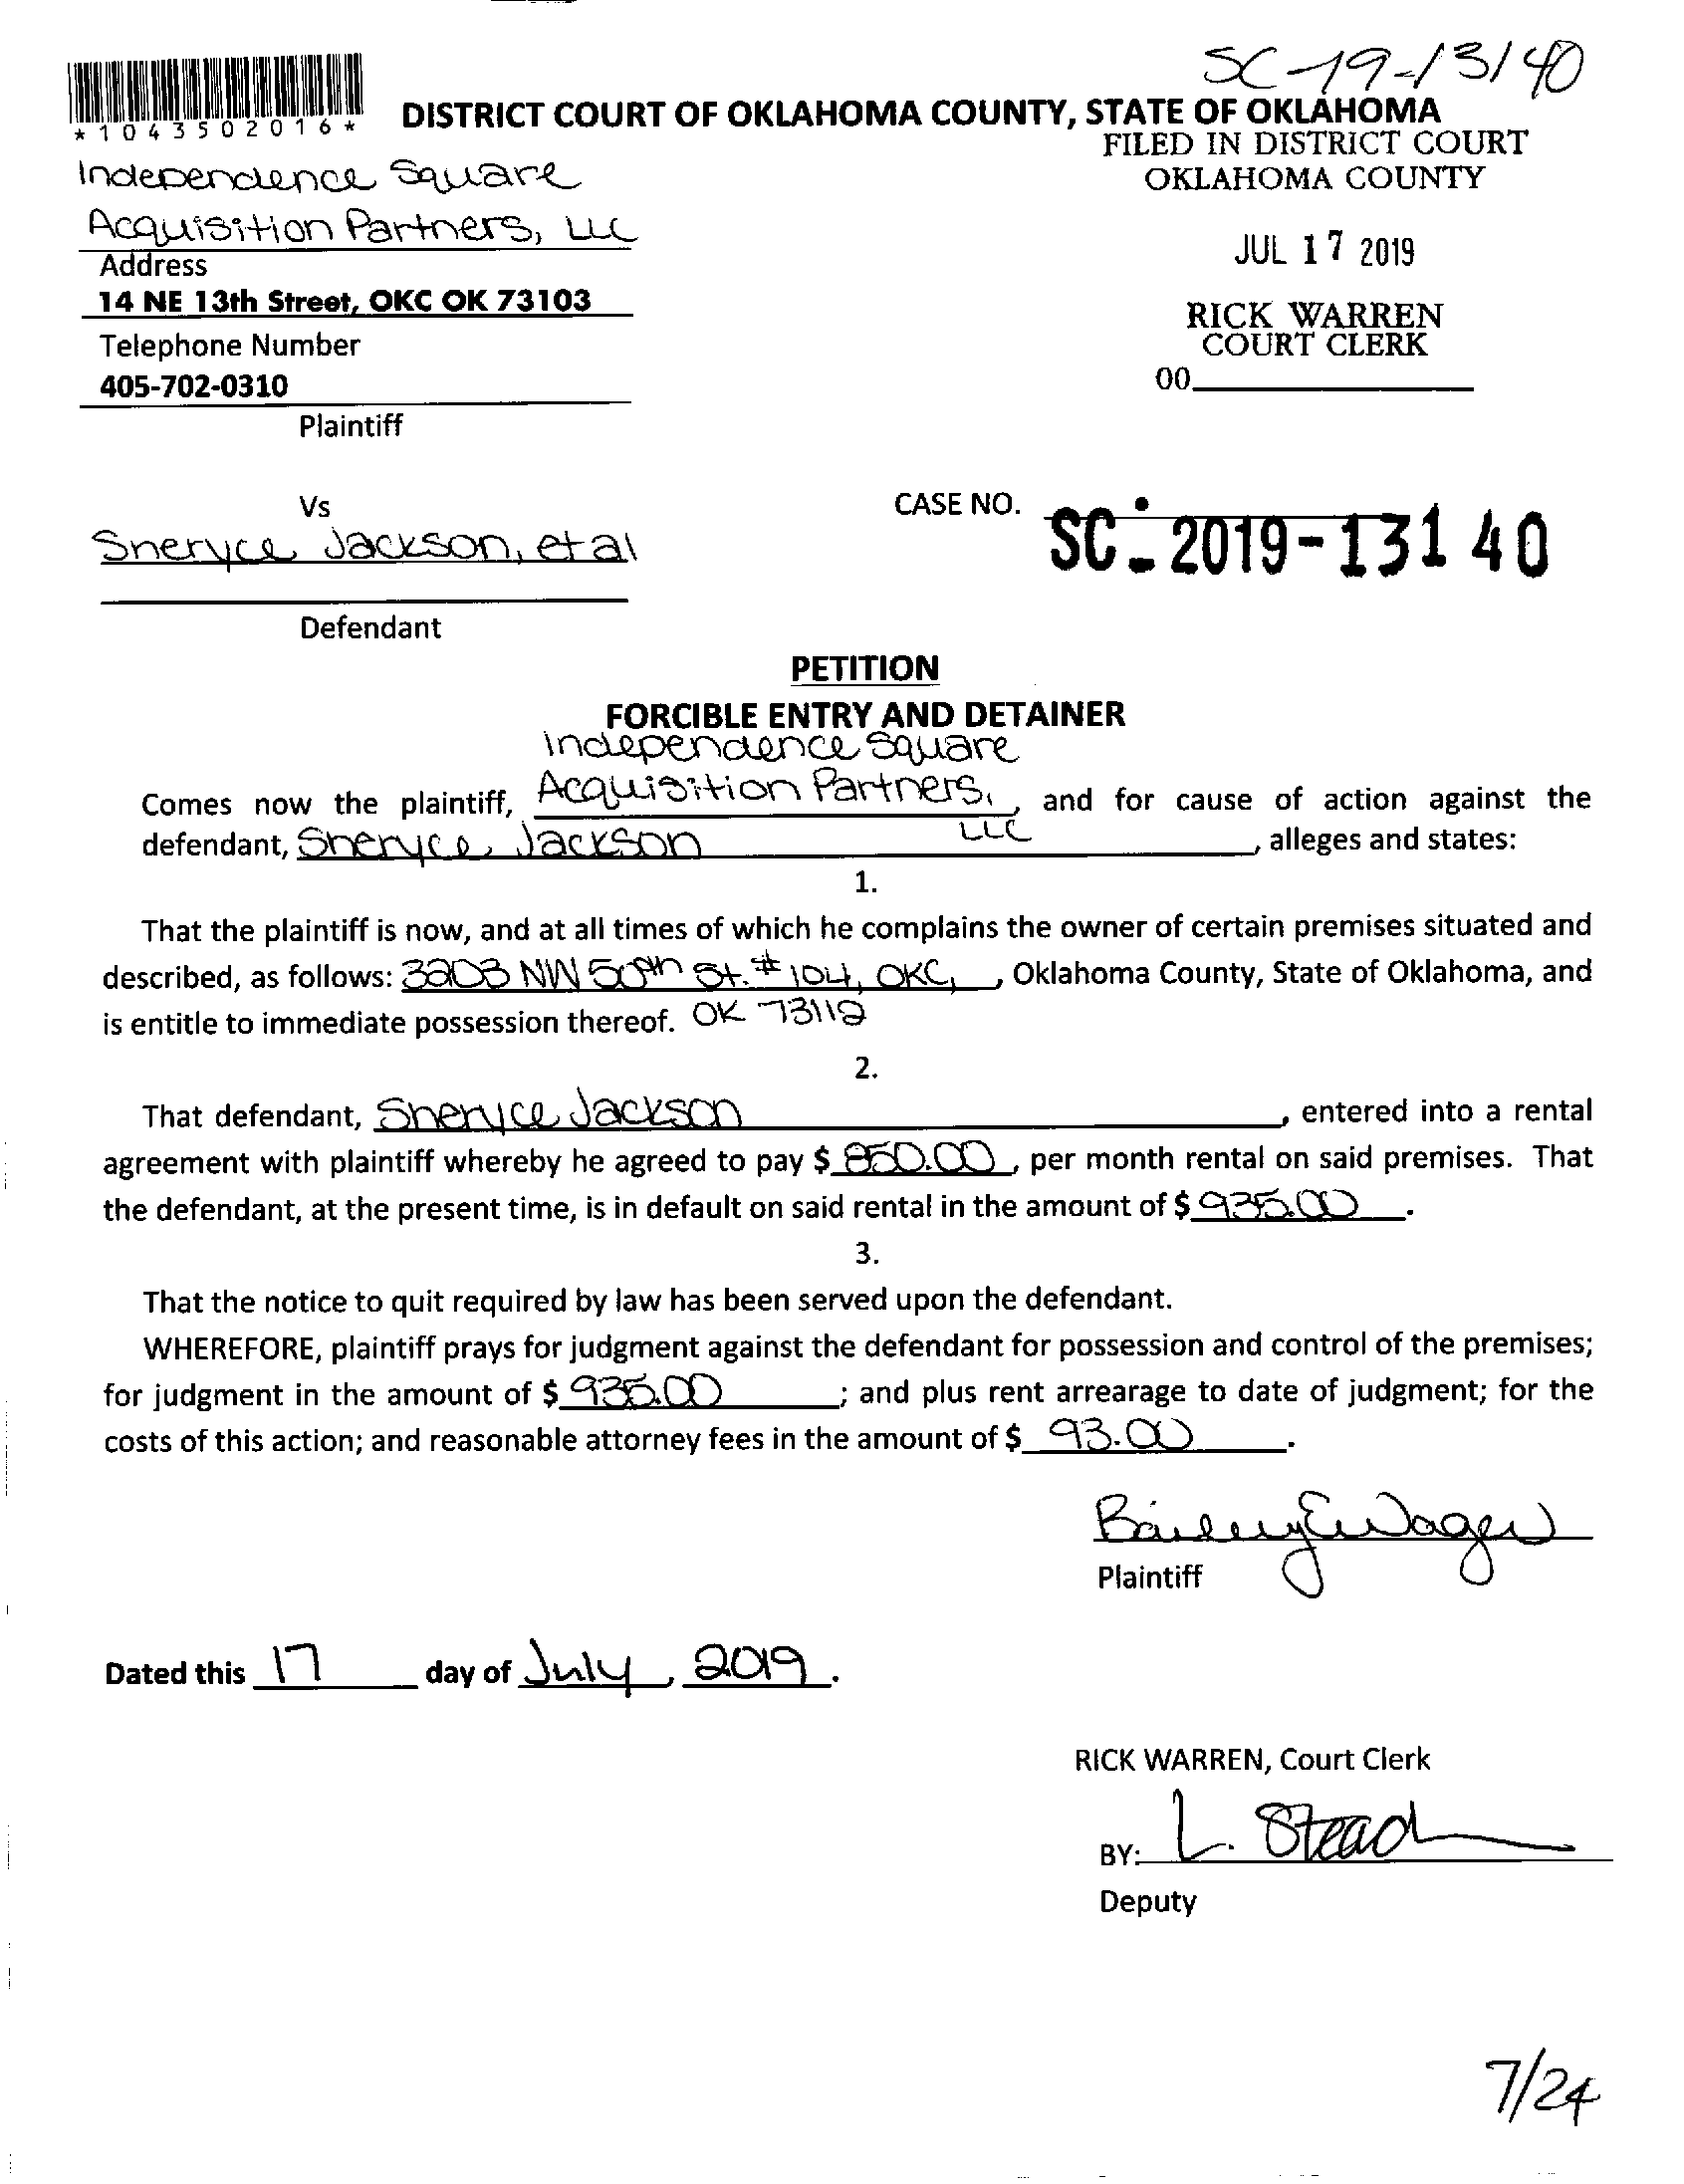 SC-19-13140
*1043502016*
DISTRICT COURT OF OKLAHOMA COUNTY, STATE OF OKLAHOMA
FILED IN DISTRICT COURT
OKLAHOMA COUNTY
JUL 17 2019
RICK WARREN
COURT CLERK
00
Independence Square
Acquisition Partners, LLC
Address
14 NE 13th Street, OKC OK 73103
Telephone Number
405-702-0310
Plaintiff
Vs
Sheryce Jackson, et al
Defendant
CASE NO. SC-2019-13140
PETITION
FORCIBLE ENTRY AND DETAINER
Independence Square
Comes now the plaintiff, Acquisition Partners, , and for cause of action against the
LLC
defendant, Sheryce Jackson , alleges and states:
1.
That the plaintiff is now, and at all times of which he complains the owner of certain premises situated and
described, as follows: 3203 NW 50th St. #104, OKC, , Oklahoma County, State of Oklahoma, and
is entitle to immediate possession thereof. OK 73112
2.
That defendant, Sheryce Jackson , entered into a rental
agreement with plaintiff whereby he agreed to pay $ 850.00 , per month rental on said premises. That
the defendant, at the present time, is in default on said rental in the amount of $ 935.00 .
3.
That the notice to quit required by law has been served upon the defendant.
WHEREFORE, plaintiff prays for judgment against the defendant for possession and control of the premises;
for judgment in the amount of $ 935.00 ; and plus rent arrearage to date of judgment; for the
costs of this action; and reasonable attorney fees in the amount of $ 93.00 .
Plaintiff
Dated this 17 day of July , 2019 .
RICK WARREN, Court Clerk
BY: L. Stead
Deputy
7/24